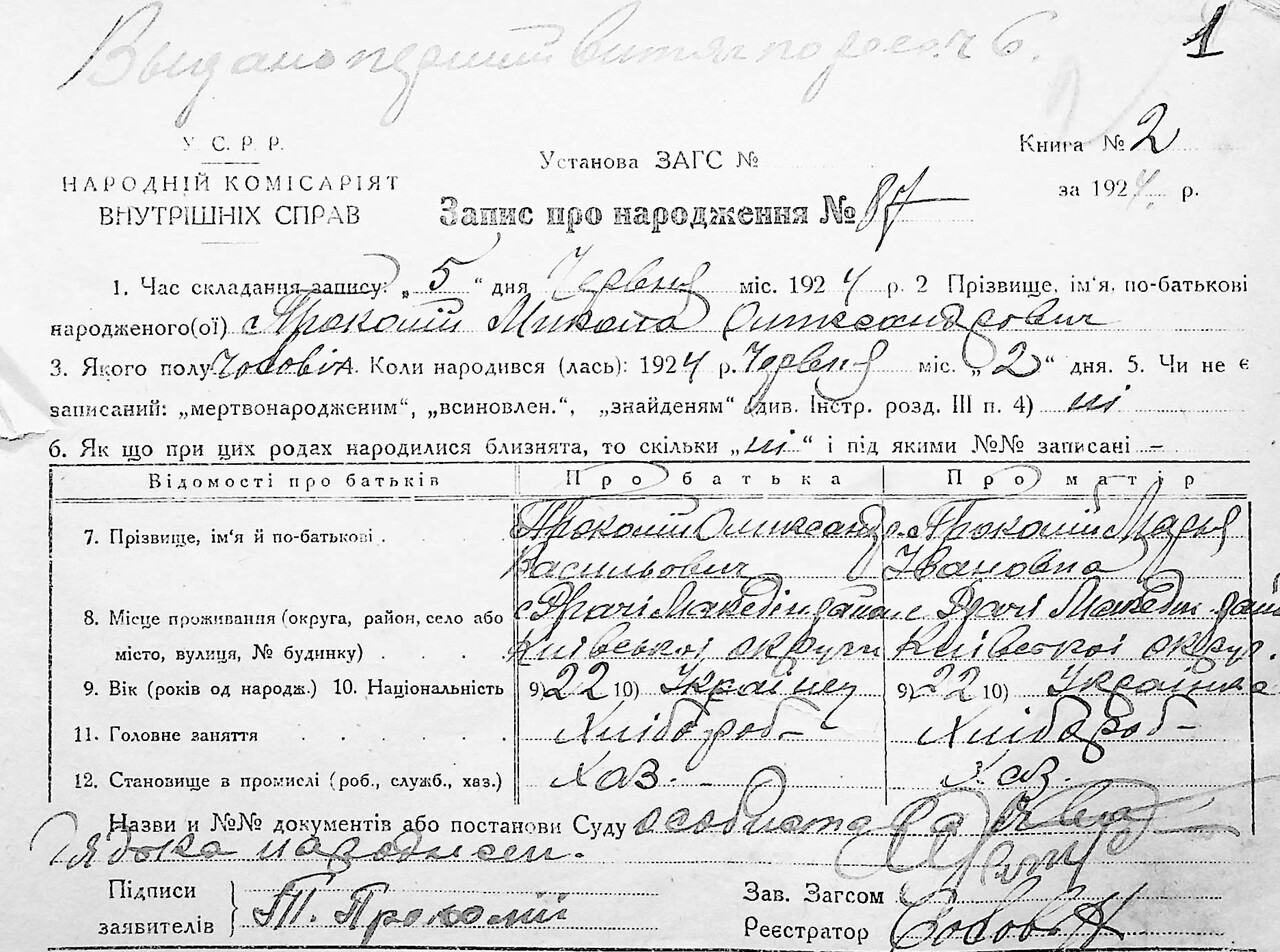 Выдано перший витяг по
1
У. С. Р. Р.
НАРОДНІЙ КОМІСАРІЯТ
ВНУТРІШНІХ СПРАВ
Установа ЗАГС №
Запис про народження № 87
Книга № 2
за 1924 р.
1. Час складання запису: „ 5 “ дня Червня міс. 1924 р. 2 Прізвище, ім'я, по-батькові
народженого(ої) Прокопій Микола Олександрович
3. Якого полу Чоловік. Коли народився (лась): 1924 р. Червня міс. „ 2 “ дня. 5. Чи не є
записаний: „мертвонародженим“, „всиновлен.“, „знайденям“ (див. Інстр. розд. III п. 4) ні
6. Як що при цих родах народилися близнята, то скільки „ ні “ і під якими №№ записані —
Відомості про батьків Про батька Про матір
7. Прізвище, ім'я й по-батькові . Прокопій Олександр Прокопій Марья
Васильович Івановна
8. Місце проживання (округа, район, село або
місто, вулиця, № будинку) . . . . Київської округи Київської округ.
9. Вік (років од народж.) 10. Національність 9) 22 10) Українец 9) 22 10) Українка
11. Головне заняття . . . . . . . Хлібороб – Хлібороб –
12. Становище в промислі (роб., служб., хаз.) Хаз. – Хаз. –
Назви и №№ документів або постанови Суду особиста
Підписи
заявителів } Прокопій
Зав. Загсом
Реєстратор